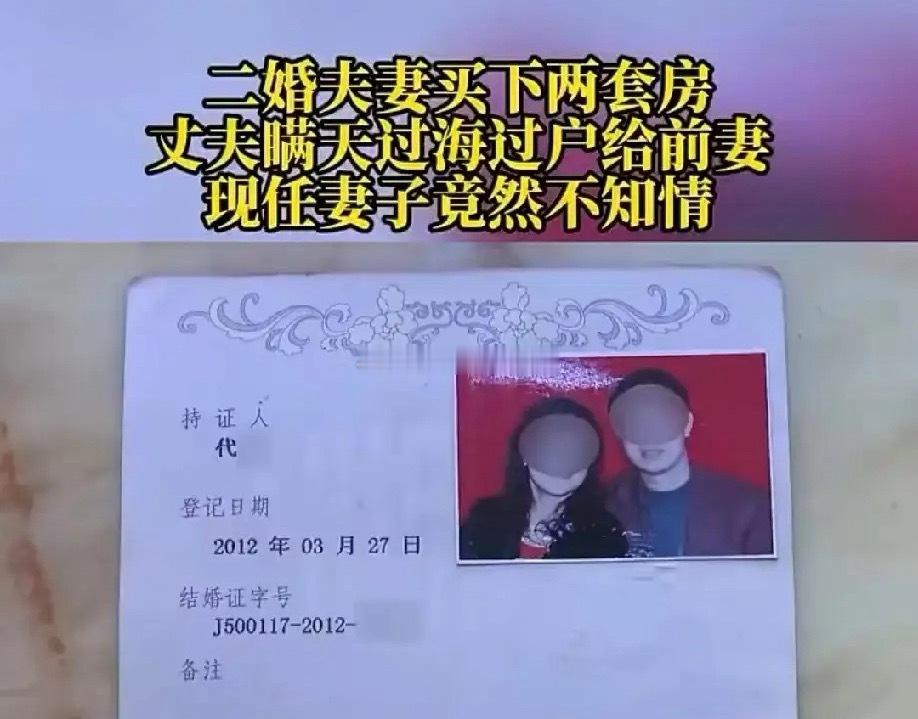 二婚夫妻买下两套房
丈夫瞒天过海过户给前妻
现任妻子竟然不知情
持证人
代
登记日期
2012年03月27日
结婚证字号
J500117-2012-
备注